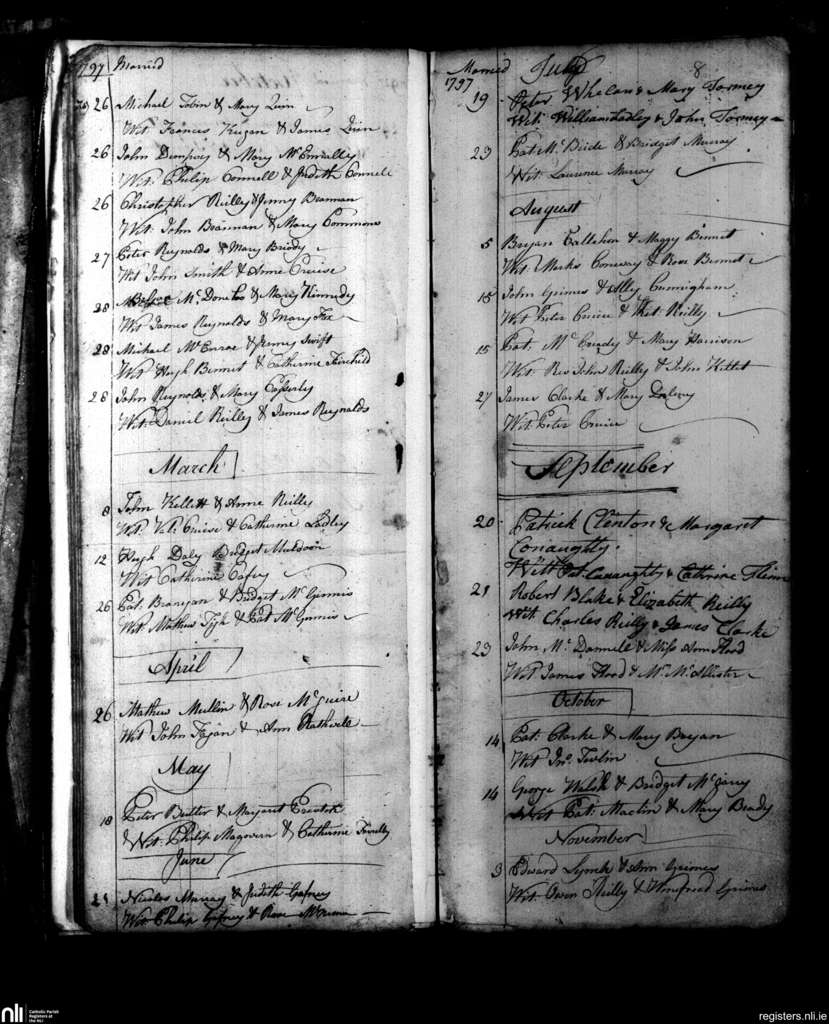 1797 Married
26 Michael Tobin & Mary Quin
Wit: Francis Keegan & James Quin
26 John Dempsy & Mary McEnnally
Wit: Philip Connell & Judith Connell
26 Christopher Reilly & Jenny Brannan
Wit: John Brannan & Mary Commons
27 Peter Reynolds & Mary Briody
Wit John Smith & Anne Cruise
28 Mc & Mary Kennedy
Wit James Reynolds & Mary Fox
28 Michael McEnroe & Jenny Swift
Wit Hugh Bennet & Catherine Fairchild
28 John Reynolds & Mary Casserly
Wit: Daniel Reilly & James Reynolds
March
8 John Kellett & Anne Reilly
Wit. Val: Cruise & Catherine Ladley
12 Hugh Daly Bridget Muldoon
Wit Catherine
26 Pat. Branjan & Bridget McGinnis
Wit Mathew & Pat McGinnis
April
26 Mathew Mullin & Rose McGuire
Wit John Fajan & Ann Rathwell
May
18 Peter Butler & Margaret
& Wit. Philip Magovern & Catherine
June
Nicolas Murray & Judith Gafney
Wit Philip Gafney & Rose
8
Married July
1797
19 Peter Whelan & Mary Tormey
Wit: William Ladley & John Tormey
23 Pat Mc Bride & Bridget Murray
Wit. Laurence Murray
August
5 Bryan Callehon & Maggy Bennet
Wit. Marks Conway & Rose Bennet
15 John Grimes & Ally Cunnigham
Wit Peter Cruise & Kit Reilly
15 Pat. Mc & Mary Harrison
Wit. Rev John Reilly & John Kittet
27 James Clarke & Mary
Wit Peter Cruise
September
20 Patrick Clenton & Margaret
Conaughty.
Witt Pat. Conaughty & Cathrine Flinn
21 Robert Blake & Elizabeth Reilly
Wit Charles Reilly & James Clarke
23 John McDonnell & Miss Ann Flood
Wit James Flood & Mr McAllister
October
14 Pat. Clarke & Mary Bryan
Wit Jno. Tuelin
14 George Walsh & Bridget McGarry
Wit Pat: Martin & Mary Brady
November
3 Edward Lynch & Ann Grimes
Wit. Owen Reilly & Winefred Grimes
nli
Catholic Parish
Registers at
the NLI
registers.nli.ie